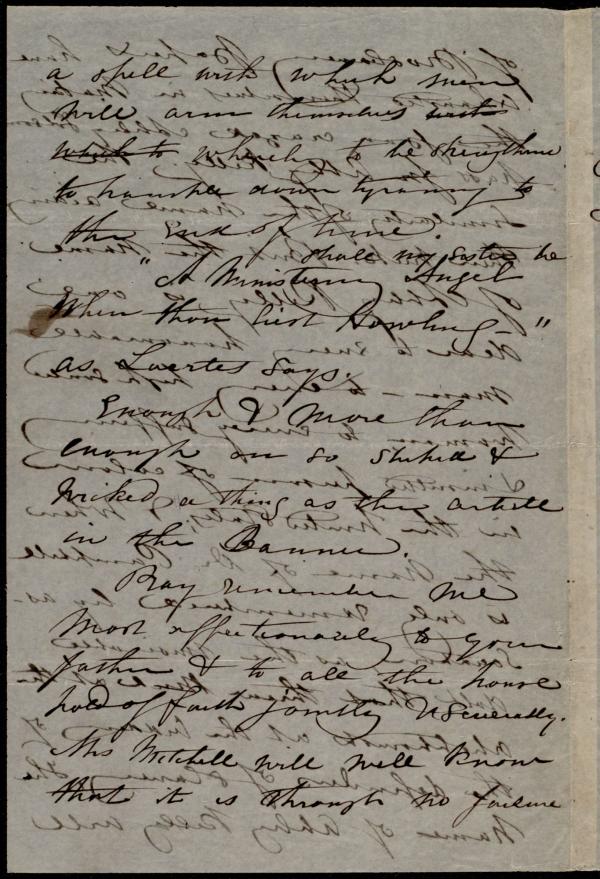 a spell with which men
will arm themselves with
which to whereby to be strengthened
to transfer down tyranny to
the End of time.
shall my Sister be
"A Ministering Angel
When thou liest Howling – "
as Laertes says.
Enough & more than
enough on so stupid &
wicked a thing as this article
in the Banner.
Pray remember me
most affectionately to your
father & to all the house
hold of faith jointly & severally.
Mrs Mitchell will well know
that it is through no failure